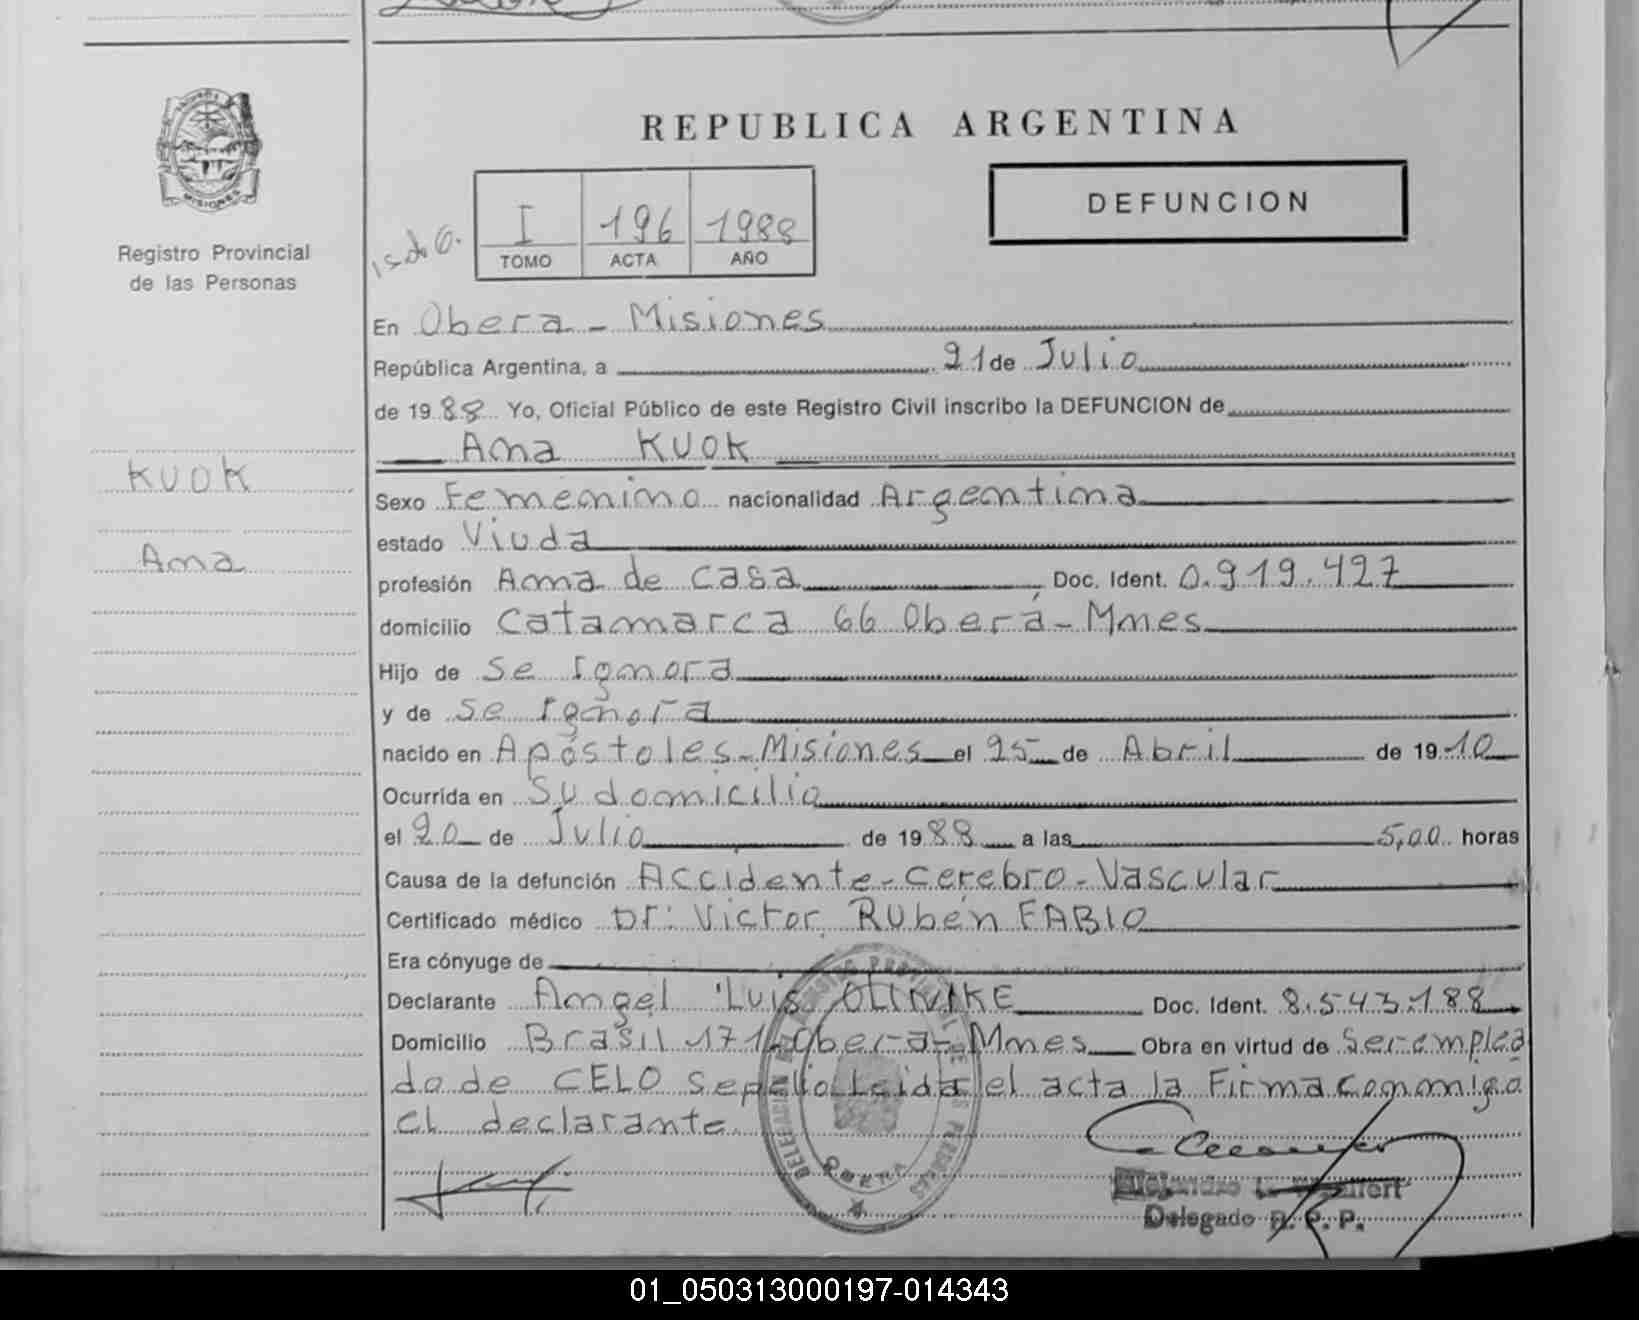 REPUBLICA ARGENTINA
MISIONES
Registro Provincial
de las Personas
I 196 1988
TOMO ACTA AÑO
DEFUNCION
En Obera - Misiones
República Argentina, a 21 de Julio
de 1988 Yo, Oficial Público de este Registro Civil inscribo la DEFUNCION de
Ana KUOK
KUOK
Ana
Sexo Femenino nacionalidad Argentina
estado Viuda
profesión Ama de casa Doc. Ident. 0.919.427
domicilio Catamarca 66 Oberá - Mnes
Hijo de Se Ignora
y de Se Ignora
nacido en Apóstoles - Misiones el 25 de Abril de 1910
Ocurrida en Su domicilio
el 20 de Julio de 1988 a las 5,00 horas
Causa de la defunción Accidente - Cerebro - Vascular
Certificado médico Dr: Victor Rubén FABIO
Era cónyuge de
Declarante Angel Luis Doc. Ident. 8.543.188
Domicilio Brasil 171 - Obera - Mnes Obra en virtud de Ser emplea
do de CELO Sepelio Leida el acta la Firma conmigo
el declarante.
DELEGACION REGISTRO PROVINCIAL DE LAS PERSONAS
OBERA
Delegado R. P. P.
01_050313000197-014343